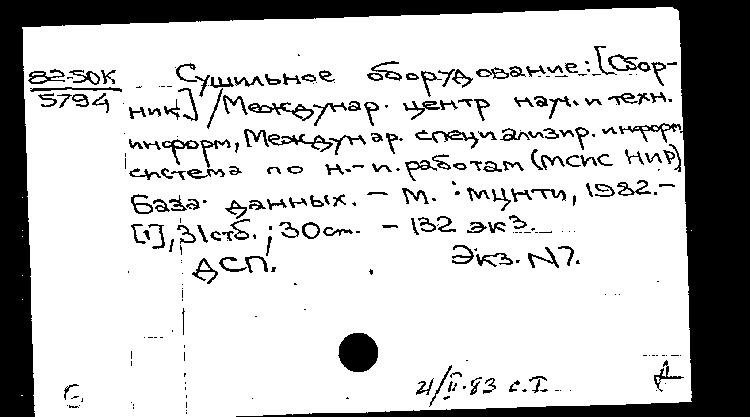 82-50К
5794
Сушильное оборудование: [Сбор-
ник] / Междунар. центр науч. и техн.
информ, Междунар. специализир. информ
система по н.-и. работам (МСИС НИР)
База данных. - М. : МЦНТИ, 1982.-
[1], 31 стб. ; 30 см. - 132 экз.
ДСП. Экз. N7.
21/II-83 с.Т.
Д
б